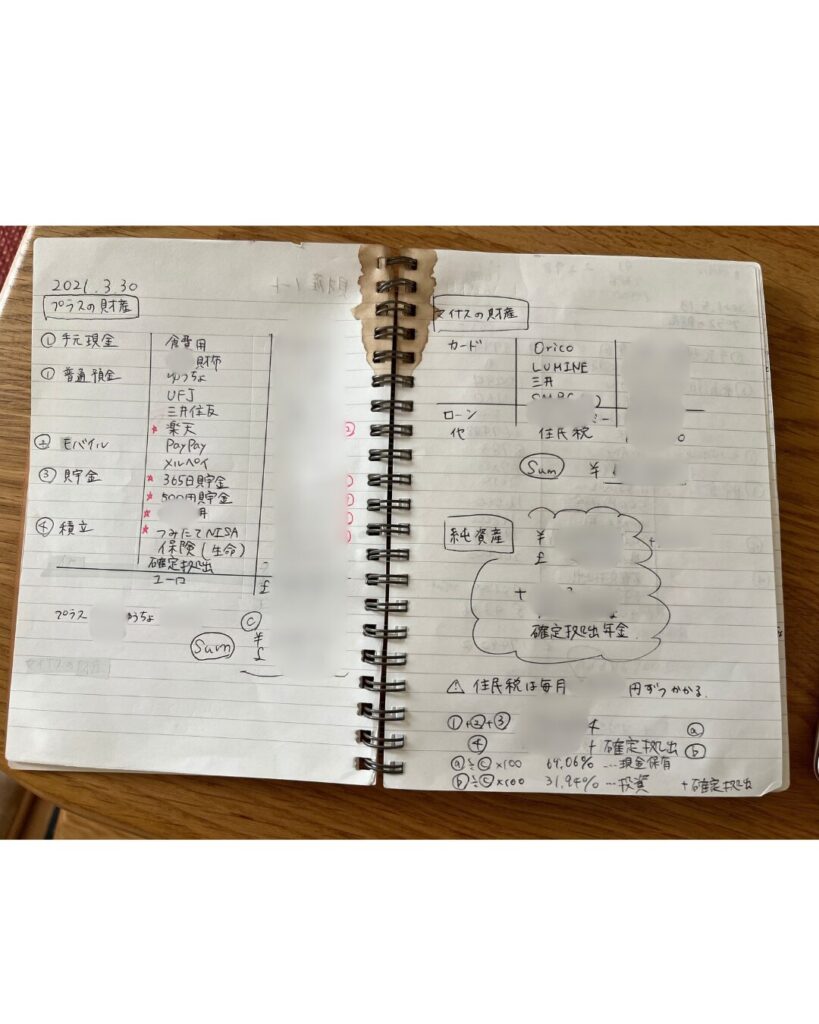 2021.3.30
プラスの財産
① 手元現金 食費用
財布
① 普通預金 ゆうちょ
UFJ
三井住友
* 楽天
モバイル PayPay
メルペイ
③ 貯金 * 365日貯金
* 500円貯金
*
④ 積立 * つみたてNISA
保険(生命)
確定拠出
ユーロ £
プラス ゆうちょ ⓒ
Sum ¥
£
マイナスの財産
カード Orico
LUMINE
三井
ローン
他 住民税
Sum ¥
純資産 ¥
£
+
確定拠出年金
⚠ 住民税は毎月 円ずつかかる.
①+②+③ ⓐ
④ +確定拠出 ⓑ
ⓐ÷ⓒ×100 …現金保有
ⓑ÷ⓒ×100 31.94% …投資 +確定拠出